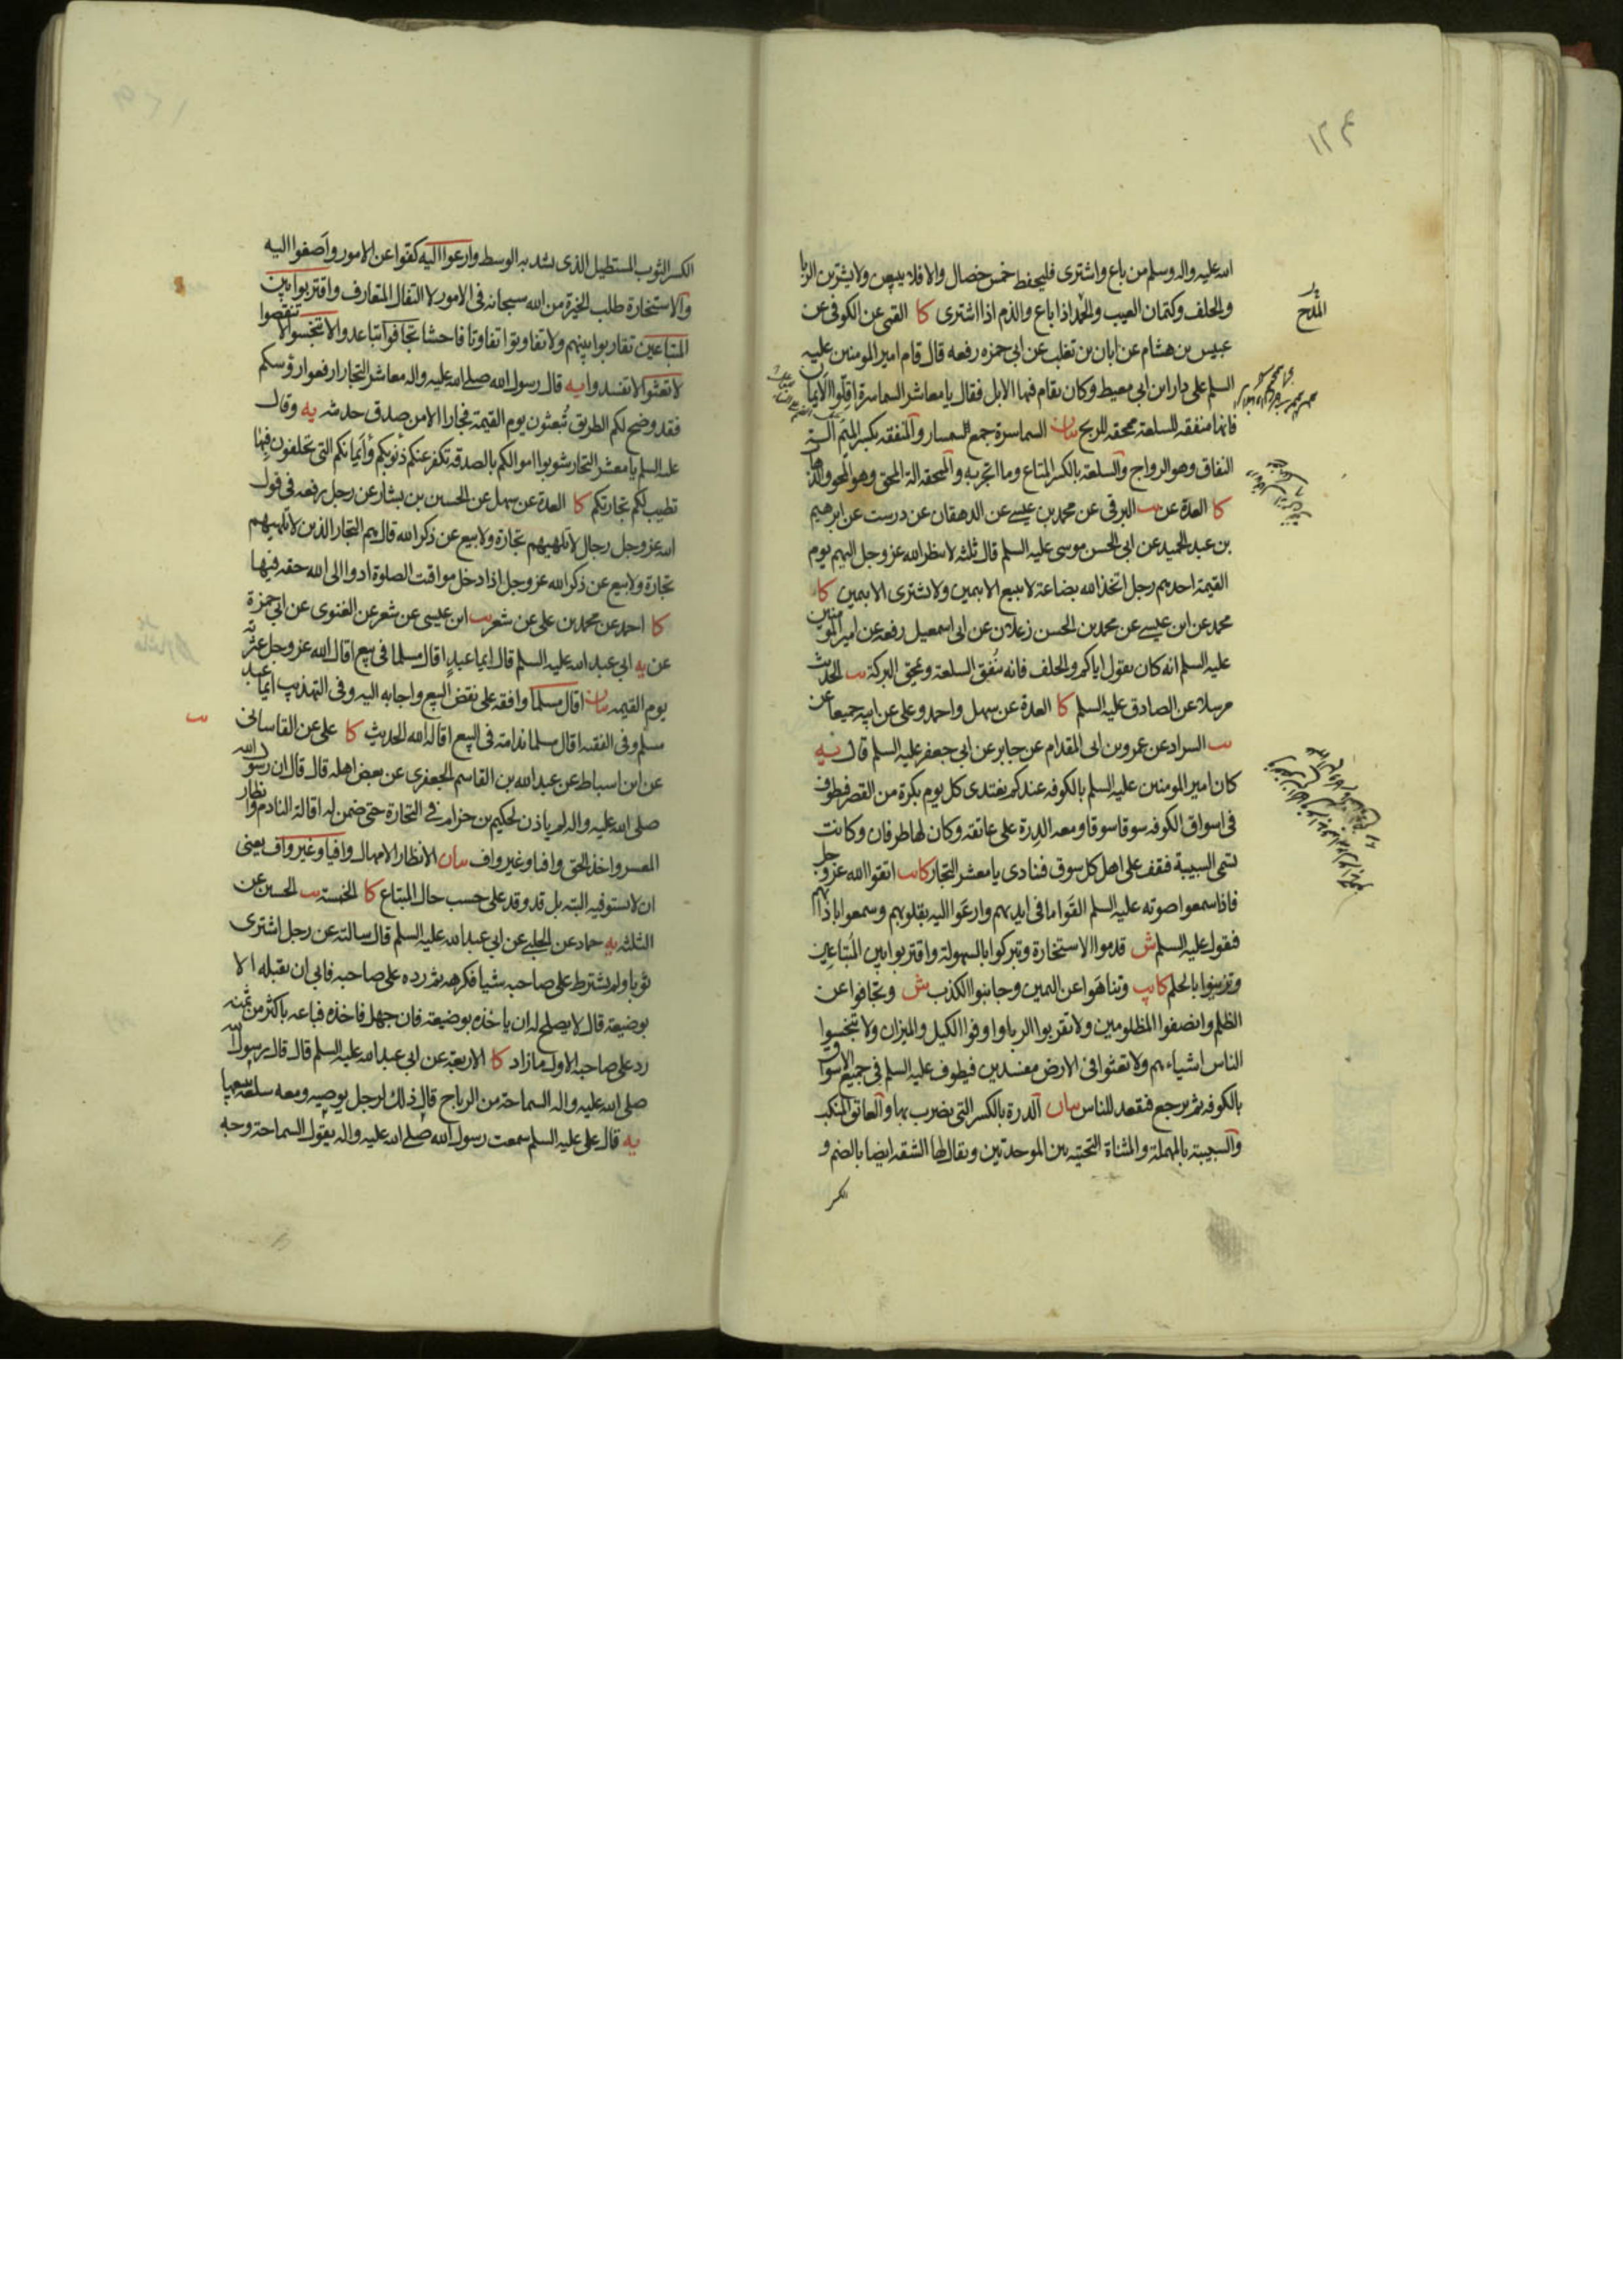 ١٢٤
الله عليه واله وسلم من باع واشترى فليحفظ خمس خصال والا فلا يبيعن ولا يشترين الربا
والحلف وكتمان العيب والحمد اذا باع والذم اذا اشترى كا القمى عن الكوفى عن
عبيس بن هشام عن ابان بن تغلب عن ابى حمزه رفعه قال قام امير المومنين عليه
السلم على دار ابن ابى معيط وكان يقام فيها الابل فقال يا معاشر السماسرة اقلوا الايمان
فانها منفقه للسلعة ممحقه للربح بيان السماسرة جمع السمسار والمنفقه بكسر الميم آلة
النفاق وهو الرواج والسلعة بالكسر المتاع وما اتجر به والممحقه الة المحق وهو المحو والذهاب
كا العدة عن يب البرقى عن محمد بن عيسى عن الدهقان عن درست عن ابرهيم
بن عبد الحميد عن ابى الحسن موسى عليه السلم قال ثلثه لا ينظر الله عز وجل اليهم يوم
القيمة احدهم رجل اتخذ الله بضاعة لا يبيع الا بيمين ولا يشترى الا بيمين كا
محمد عن ابن عيسى عن محمد بن الحسن زعلان عن ابى اسمعيل رفعه عن امير المومنين
عليه السلم انه كان يقول اياكم والحلف فانه ينفق السلعة ويمحق البركة يب الحديث
مرسلا عن الصادق عليه السلم كا العدة عن سهل واحمد وعلى عن ابيه جميعا عن
يب السراد عن عمرو بن ابى المقدام عن جابر عن ابى جعفر عليه السلم قال يه
كان امير المومنين عليه السلم بالكوفه عندكم يغتدى كل يوم بكرة من القصر فيطوف
فى اسواق الكوفه سوقا سوقا ومعه الدرة على عاتقه وكان لها طرفان وكانت
تسمى السبيبة فيقف على اهل كل سوق فينادى يا معشر التجار كا يب اتقوا الله عز وجل
فاذا سمعوا صوته عليه السلم القوا ما فى ايديهم وارعوا اليه بقلوبهم وسمعوا باذانهم
فيقول عليه السلم ش قدموا الاستخارة وتبركوا بالسهولة واقتربوا من المتباعين
وتزينوا بالحلم كا يب وتناهوا عن اليمين وجانبوا الكذب ش وتجافوا عن
الظلم وانصفوا المظلومين ولا تقربوا الربا واوفوا الكيل والميزان ولا تبخسوا
الناس اشياءهم ولا تعثوا فى الارض مفسدين فيطوف عليه السلم فى جميع الاسواق
بالكوفه ثم يرجع فيقعد للناس بيان الدرة بالكسر التى يضرب بها والعاتق المنكب
والسبيبة بالمهملة والمثناة التحتيه بين الموحدتين ويقال لها الشقه ايضا بالضم و
الكسر
المدح
الكسر الثوب المستطيل الذى يشد به الوسط وارعوا اليه كفوا عن الامور واصغوا اليه
والاستخارة طلب الخيرة من الله سبحانه فى الامور لا التفال المتعارف واقتربوا من
المتباعين تقاربوا بينهم ولا تفاوتوا تفاوتا فاحشا تجافوا تباعدوا لا تبخسوا لا تنقصوا
لا تعثوا لا تفسدوا يه قال رسول الله صلى الله عليه واله معاشر التجار ارفعوا رؤسكم
فقد وضح لكم الطريق تبعثون يوم القيمة فجارا الا من صدق حديثه يه وقال
عليه السلم يا معشر التجار شوبوا اموالكم بالصدقه تكفر عنكم ذنوبكم وايمانكم التى تحلفون فيها
تطيب لكم تجارتكم كا العدة عن سهل عن الحسين بن بشار عن رجل رفعه فى قول
الله عز وجل رجال لا تلهيهم تجارة ولا بيع عن ذكر الله قال هم التجار الذين لا تلهيهم
تجارة ولا بيع عن ذكر الله عز وجل اذا دخل مواقت الصلوة ادوا الى الله حقه فيها
كا احمد عن محمد بن على عن شعر يب ابن عيسى عن شعر عن الغنوى عن ابى حمزة
عن يه ابى عبد الله عليه السلم قال ايما عبد اقال مسلما فى بيع اقال الله عز وجل عثرته
يوم القيمه بيان اقال مسلما وافقه على نقض البيع واجابه اليه وفى التهذيب ايما عبد
مسلم وفى الفقيه اقال مسلما ندامة فى البيع اقاله الله الحديث كا على عن القاسانى يب
عن ابن اسباط عن عبد الله بن القاسم الجعفرى عن بعض اهله قال قال ان رسول الله
صلى الله عليه واله لم ياذن لحكيم بن حزام فى التجارة حتى ضمن له اقالة النادم وانظار
المعسر واخذ الحق وافيا وغير واف بيان الانظار الامهال وافيا وغير واف يعنى
ان لا يستوفيه البته بل قد وقد على حسب حال المبتاع كا الخمسة يب الحسين عن
الثلثه يه حماد عن الحلبى عن ابى عبد الله عليه السلم قال سالته عن رجل اشترى
ثوبا ولم يشترط على صاحبه شيا فكرهه ثم رده على صاحبه فابى ان يقبله الا
بوضيعة قال لا يصلح له ان ياخذه بوضيعة فان جهل فاخذه فباعه باكثر من ثمنه
رد على صاحبه الاول ما زاد كا الاربعة عن ابى عبد الله عليه السلم قال قال رسول الله
صلى الله عليه واله السماحة من الرباح قال ذلك لرجل يوصيه ومعه سلعة يبيعها
يه قال على عليه السلم سمعت رسول الله صلى الله عليه واله يقول السماحة وجه